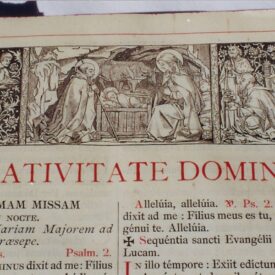 ATIVITATE DOMIN
MAM MISSAM
NOCTE.
ariam Majorem ad
ræsepe.
s. Psalm. 2.
MINUS dixit ad me: Fílius
Allelúia, allelúia. ℣. Ps. 2.
dixit ad me : Fílius meus es tu,
génui te. Allelúia.
✠ Sequéntia sancti Evangélii
Lucam.
IN illo témpore : Exiit edíctum